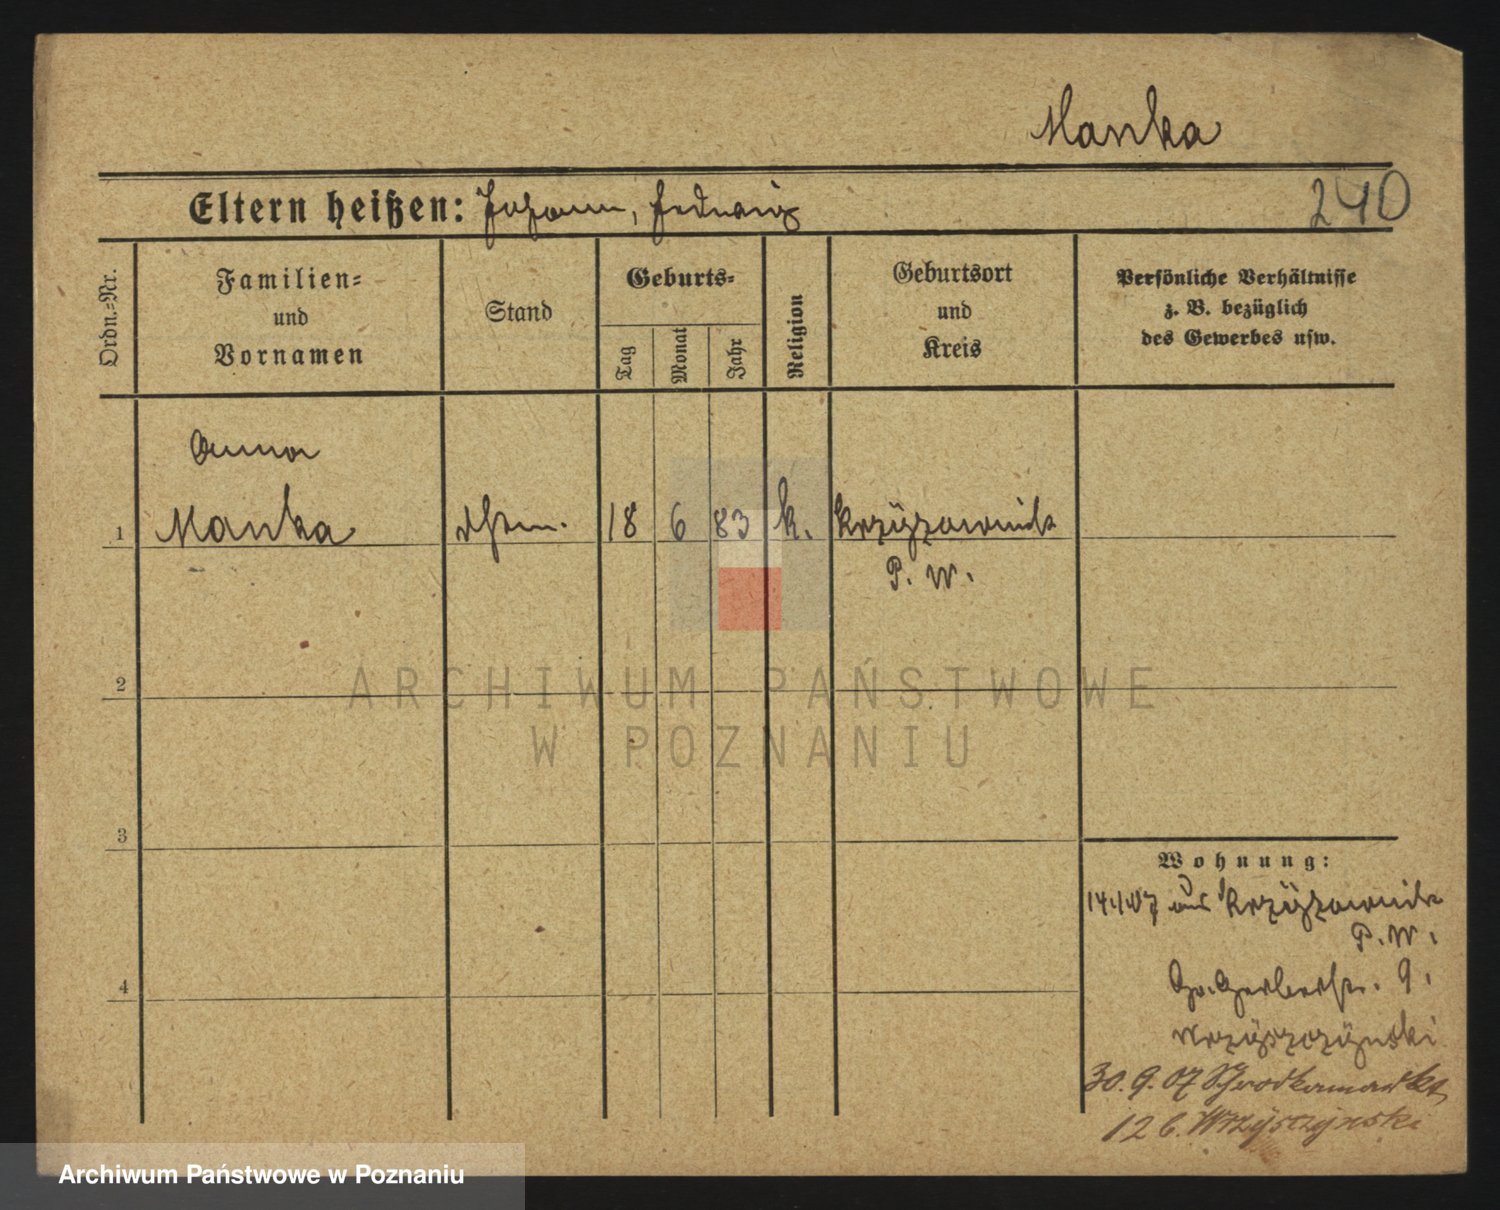 Manka
Eltern heißen: Johann, Hedwig
240
Ordn.-Nr.
Familien-
und
Vornamen
Stand
Geburts-
Tag
Monat
Jahr
Religion
Geburtsort
und
Kreis
Persönliche Verhältnisse
z. B. bezüglich
des Gewerbes usw.
Anna
1 Manka 18 6 83 k. Krzyżownik
P. W.
2
3
4
Wohnung:
aus Krzyżownik
P. W.
Gr. Gerberstr. 9.
Wrzyszczynski
30.9.07
12 b. Wrzyszczynski
ARCHIWUM PAŃSTWOWE
W POZNANIU
Archiwum Państwowe w Poznaniu